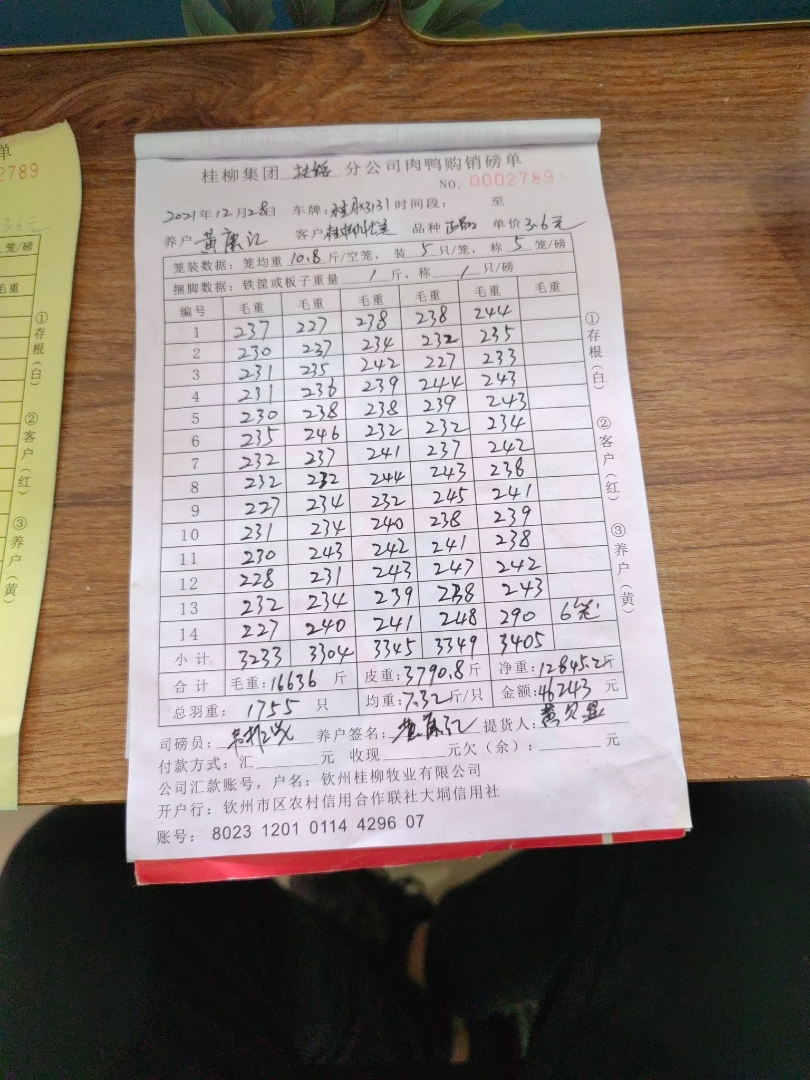 桂柳集团 扶绥 分公司肉鸭购销磅单
NO. 0002789
2021年12月28日 车牌: 时间段: 至
养户 黄康江 客户 品种 正品 单价 3.6元
笼装数据: 笼均重 10.8 斤/空笼, 装 5 只/笼, 称 5 笼/磅
捆脚数据: 铁筐或板子重量 1 斤, 称 1 只/磅
编号 毛重 毛重 毛重 毛重 毛重 毛重
1 237 227 238 238 244
2 230 237 234 232 235
3 231 235 242 227 233
4 231 236 239 244 243
5 230 238 238 239 243
6 235 246 232 232 234
7 232 237 241 237 242
8 232 232 244 243 238
9 227 234 232 245 241
10 231 234 240 238 239
11 230 243 242 241 238
12 228 231 243 247 242
13 232 234 239 238 243
14 227 240 241 248 290 6笼
小计 3233 3304 3345 3349 3405
合计 毛重: 16636 斤 皮重: 3790.8 斤 净重: 12845.2 斤
总羽重: 1755 只 均重: 7.32 斤/只 金额: 46243 元
司磅员: 养户签名: 黄康江 提货人:
付款方式: 汇 元 收现 元欠(余): 元
公司汇款账号, 户名: 钦州桂柳牧业有限公司
开户行: 钦州市区农村信用合作联社大垌信用社
账号: 8023 1201 0114 4296 07
①存根(白) ②客户(红) ③养户(黄)
单
2789
3.6元
笼/磅
毛重
①存根(白) ②客户(红) ③养户(黄)